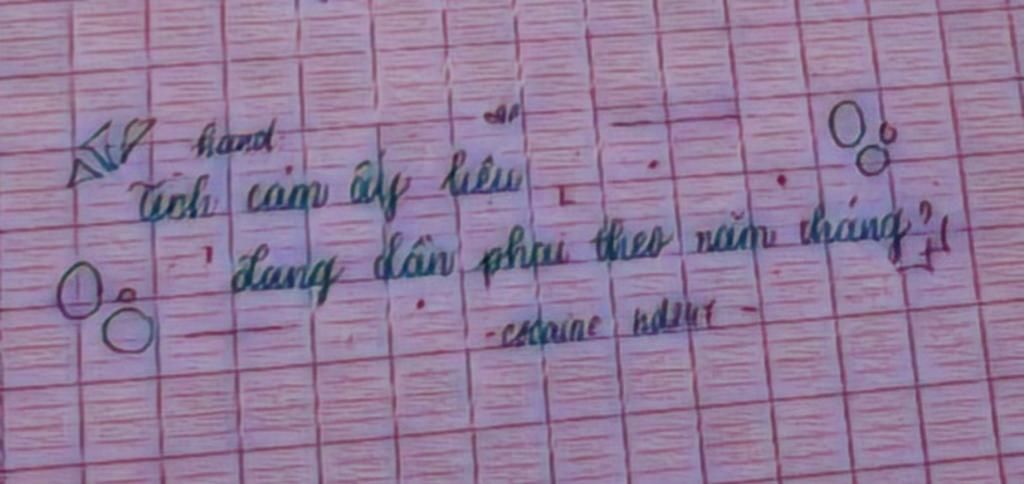 hand
Tình cảm ấy liệu
đang dần phai theo năm tháng?
- cocaine